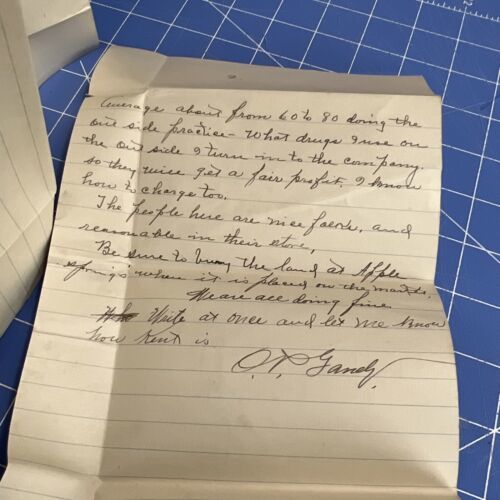 average about from 60 to 80 doing the
out side practice - What drugs I use on
the out side I turn in to the company.
so they wise get a fair profit. I know
how to charge too.
The people here are nice folks, and
reasonable in their store,
Be sure to buy the land at Apple
springs when it is placed on the market.
We are all doing fine.
Write at once and let me know
how Kent is
O. P. Gandy.